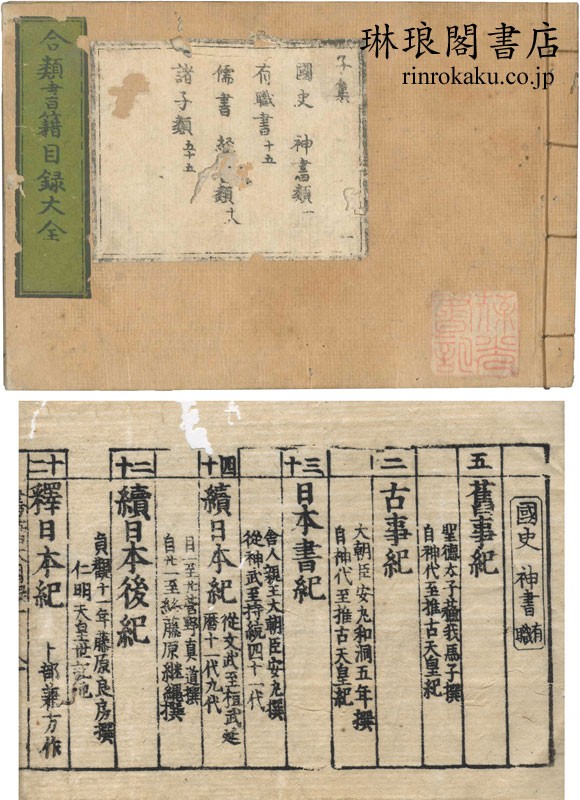 琳琅閣書店
rinrokaku.co.jp
合類書籍目録大全
子集
國史 神書類 一
有職書 十五
儒書 經 類 十八
諸子類 五十五
國史 神書 有職
五 舊事紀
聖德太子蘓我馬子撰
自神代至推古天皇紀
三 古事紀
大朝臣安丸和洞五年撰
自神代至推古天皇紀
三十 日本書紀
舎人親王大朝臣安丸撰
從神武至持統四十一代
四十 續日本紀
從文武至桓武延
暦十一代九代
自一至廿菅野真道撰
自廿一至終藤原継縄撰
二十 續日本後紀
貞觀十一年藤原良房撰
仁明天皇世記也
十二 釋日本紀 卜部兼方作